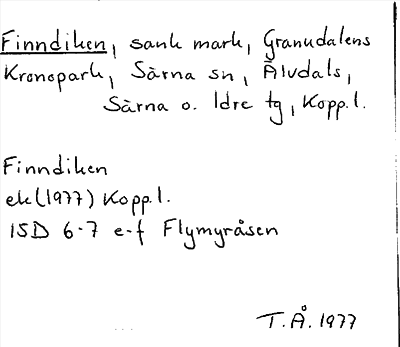 Finndiken, sank mark, Granudalens
Kronopark, Särna sn, Älvdals,
Särna o. Idre tg, Kopp.l.
Finndiken
ek (1977) Kopp.l.
15D 6-7 e-f Flymyråsen
T.Å. 1977